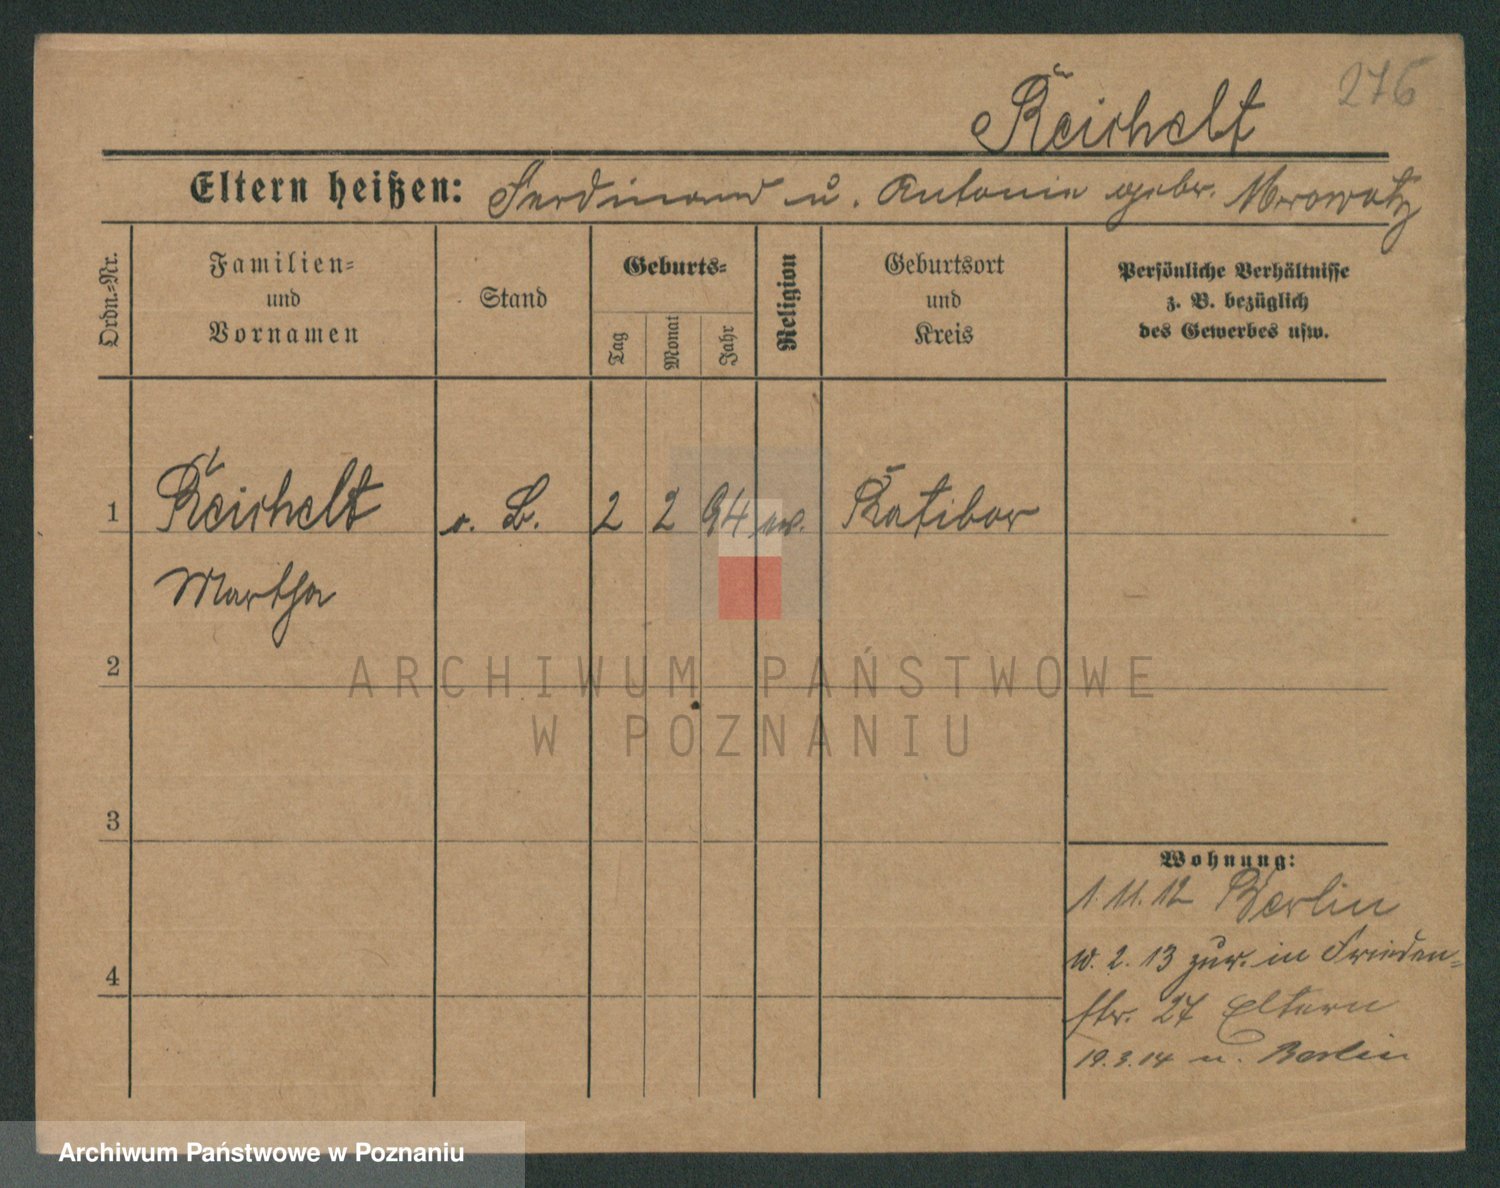 276
Reichelt
Eltern heißen: Ferdinand u. Antonie gebr. Mrowatz
Ordn.-Nr.
Familien-
und
Vornamen
Stand
Geburts-
Tag
Monat
Jahr
Religion
Geburtsort
und
Kreis
Persönliche Verhältnisse
z. B. bezüglich
des Gewerbes usw.
1 Reichelt o. B. 2 2 94 ev. Ratibor
Martha
2
3
4
Wohnung:
1. 11. 12 Berlin
w. 2. 13 zur. in Frieden-
str. 27 Eltern
19. 3. 14 n. Berlin
ARCHIWUM PAŃSTWOWE
W POZNANIU
Archiwum Państwowe w Poznaniu